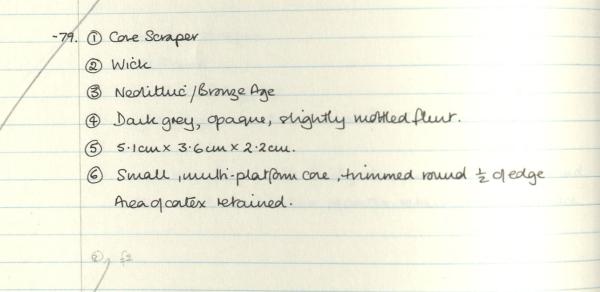 -79. ① Core Scraper
② Wick
③ Neolithic/Bronze Age
④ Dark grey, opaque, slightly mottled flint.
⑤ 5.1cm x 3.6cm x 2.2cm.
⑥ Small, multi-platform core, trimmed round ½ of edge
Area of cortex retained.